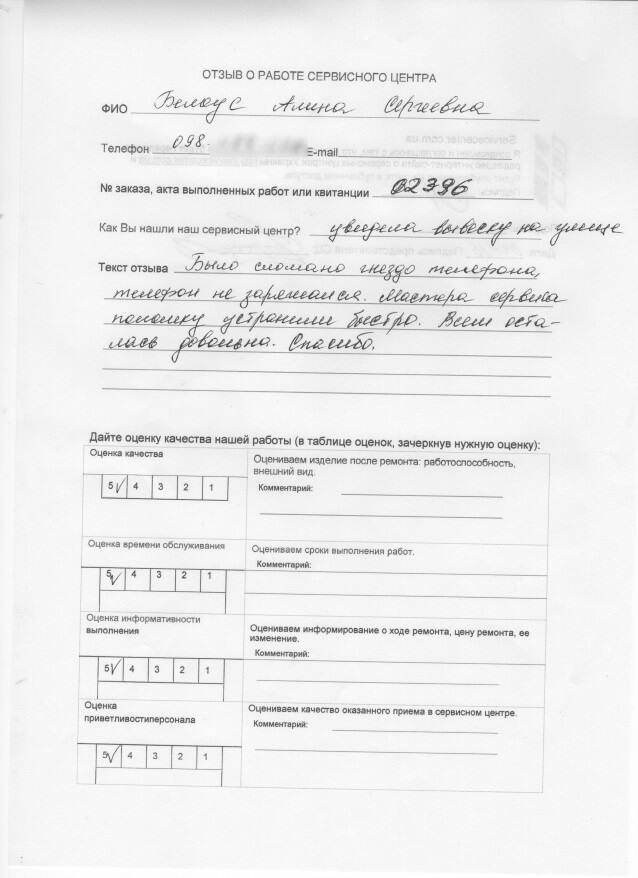 ОТЗЫВ О РАБОТЕ СЕРВИСНОГО ЦЕНТРА
ФИО Белоус Алина Сергеевна
Телефон 098. E-mail
№ заказа, акта выполненных работ или квитанции 02396
Как Вы нашли наш сервисный центр? увидела вывеску на улице
Текст отзыва Было сломано гнездо телефона,
телефон не заряжался. Мастера сервиса
поломку устранили быстро. Всем оста-
лась довольна. Спасибо.
Дайте оценку качества нашей работы (в таблице оценок, зачеркнув нужную оценку):
Оценка качества
5 4 3 2 1
Оцениваем изделие после ремонта: работоспособность,
внешний вид.
Комментарий:
Оценка времени обслуживания
5 4 3 2 1
Оцениваем сроки выполнения работ.
Комментарий:
Оценка информативности
выполнения
5 4 3 2 1
Оцениваем информирование о ходе ремонта, цену ремонта, ее
изменение.
Комментарий:
Оценка
приветливостиперсонала
5 4 3 2 1
Оцениваем качество оказанного приема в сервисном центре.
Комментарий: